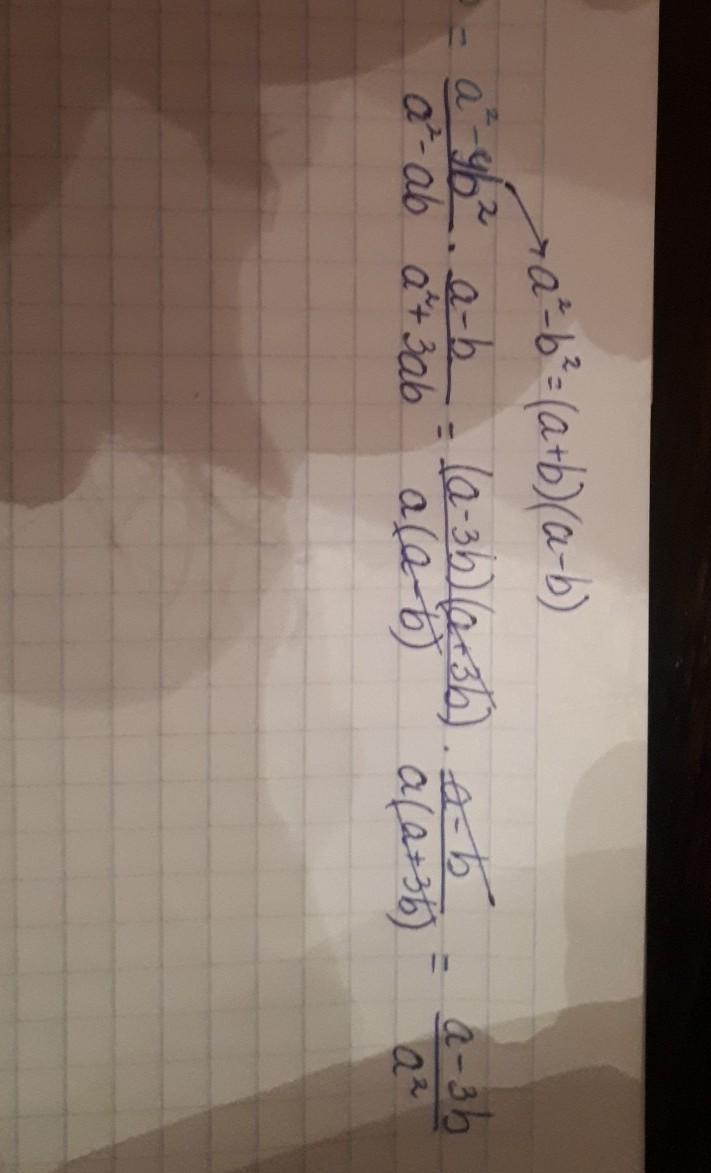 a² - b² = (a+b)(a-b)
= a² - 9b² / a² - ab · a - b / a² + 3ab = (a - 3b)(a + 3b) / a(a - b) · a - b / a(a + 3b) = a - 3b / a²